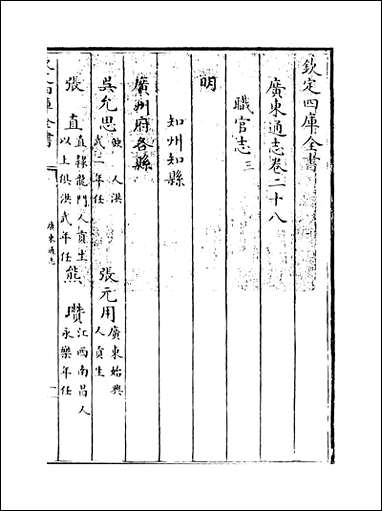 欽定四庫全書
廣東通志卷二十八
職官志三
明
知州知縣
廣州府各縣
吳允思 人洪武二年任 張元用 廣東始興人貢生
張直 直隸龍門人貢生以上俱洪武年任 熊瓚 江西南昌人永樂年任
廣東通志